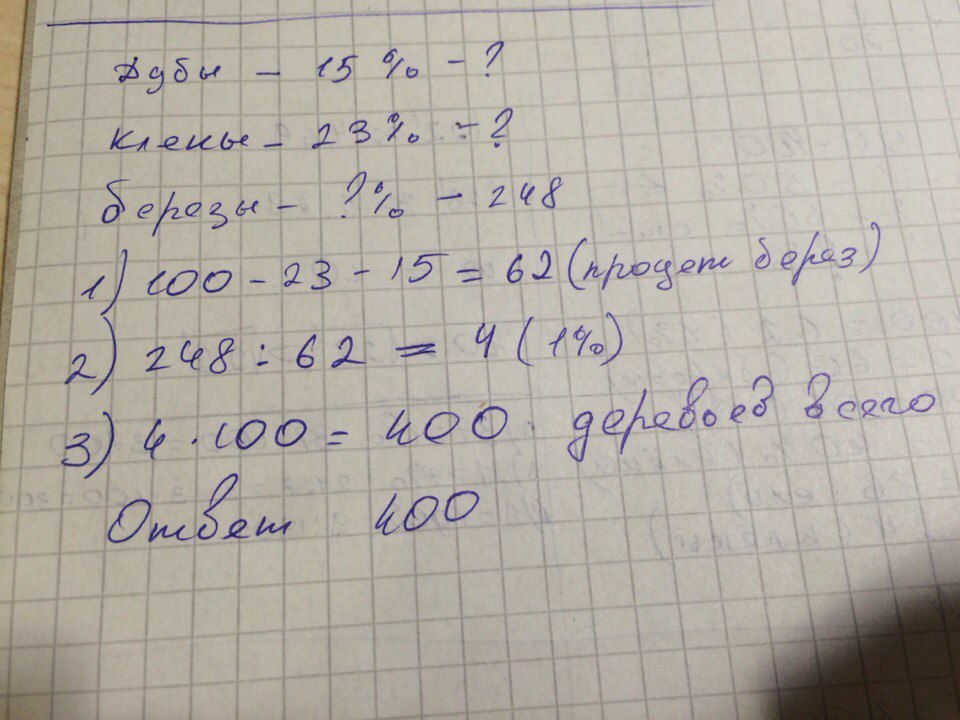 Дубы - 15 % - ?
клены - 23% - ?
березы - ?% - 248
1) 100 - 23 - 15 = 62 (процент берез)
2) 248 : 62 = 4 (1%)
3) 4 · 100 = 400 деревьев всего
Ответ 400